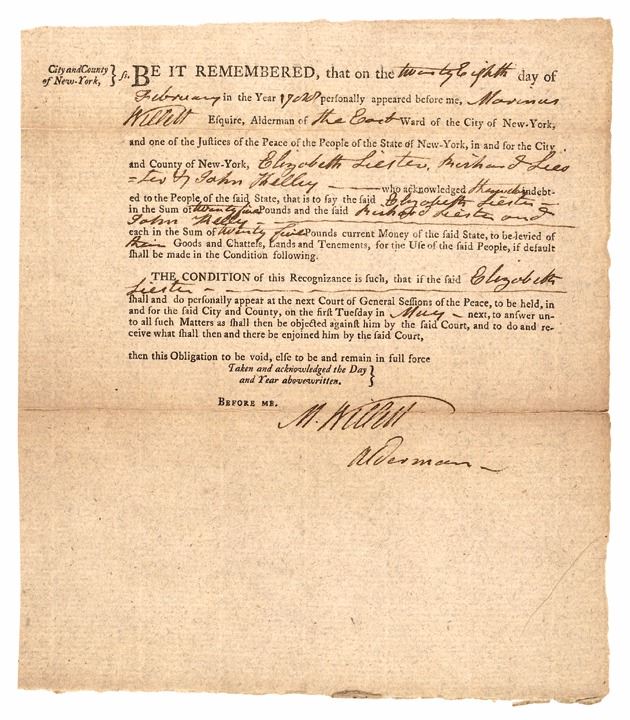 City and County of New-York, } ſs. BE IT REMEMBERED, that on the twenty Eighth day of
February in the Year personally appeared before me, Marinus
Willett Esquire, Alderman of the East Ward of the City of New-York,
and one of the Juſtices of the Peace of the People of the State of New-York, in and for the City
and County of New-York, Elizabeth Liester, Richard Lies
=ter & John Kelley who acknowledged indebt-
ed to the People of the ſaid State, that is to ſay the ſaid Elizabeth Liester
in the Sum of twenty five Pounds and the ſaid Richard Liester and
John Kelley
each in the Sum of twenty five Pounds current Money of the ſaid State, to be levied of
their Goods and Chattels, Lands and Tenements, for the Uſe of the ſaid People, if default
ſhall be made in the Condition following.
THE CONDITION of this Recognizance is ſuch, that if the ſaid Elizabeth
Liester
ſhall and do perſonally appear at the next Court of General Seſſions of the Peace, to be held, in
and for the ſaid City and County, on the firſt Tueſday in May next, to anſwer un-
to all ſuch Matters as ſhall then be objected againſt him by the ſaid Court, and to do and re-
ceive what ſhall then and there be enjoined him by the ſaid Court,
then this Obligation to be void, elſe to be and remain in full force
Taken and acknowledged the Day
and Year abovewritten. }
BEFORE ME.
M. Willett
Alderman